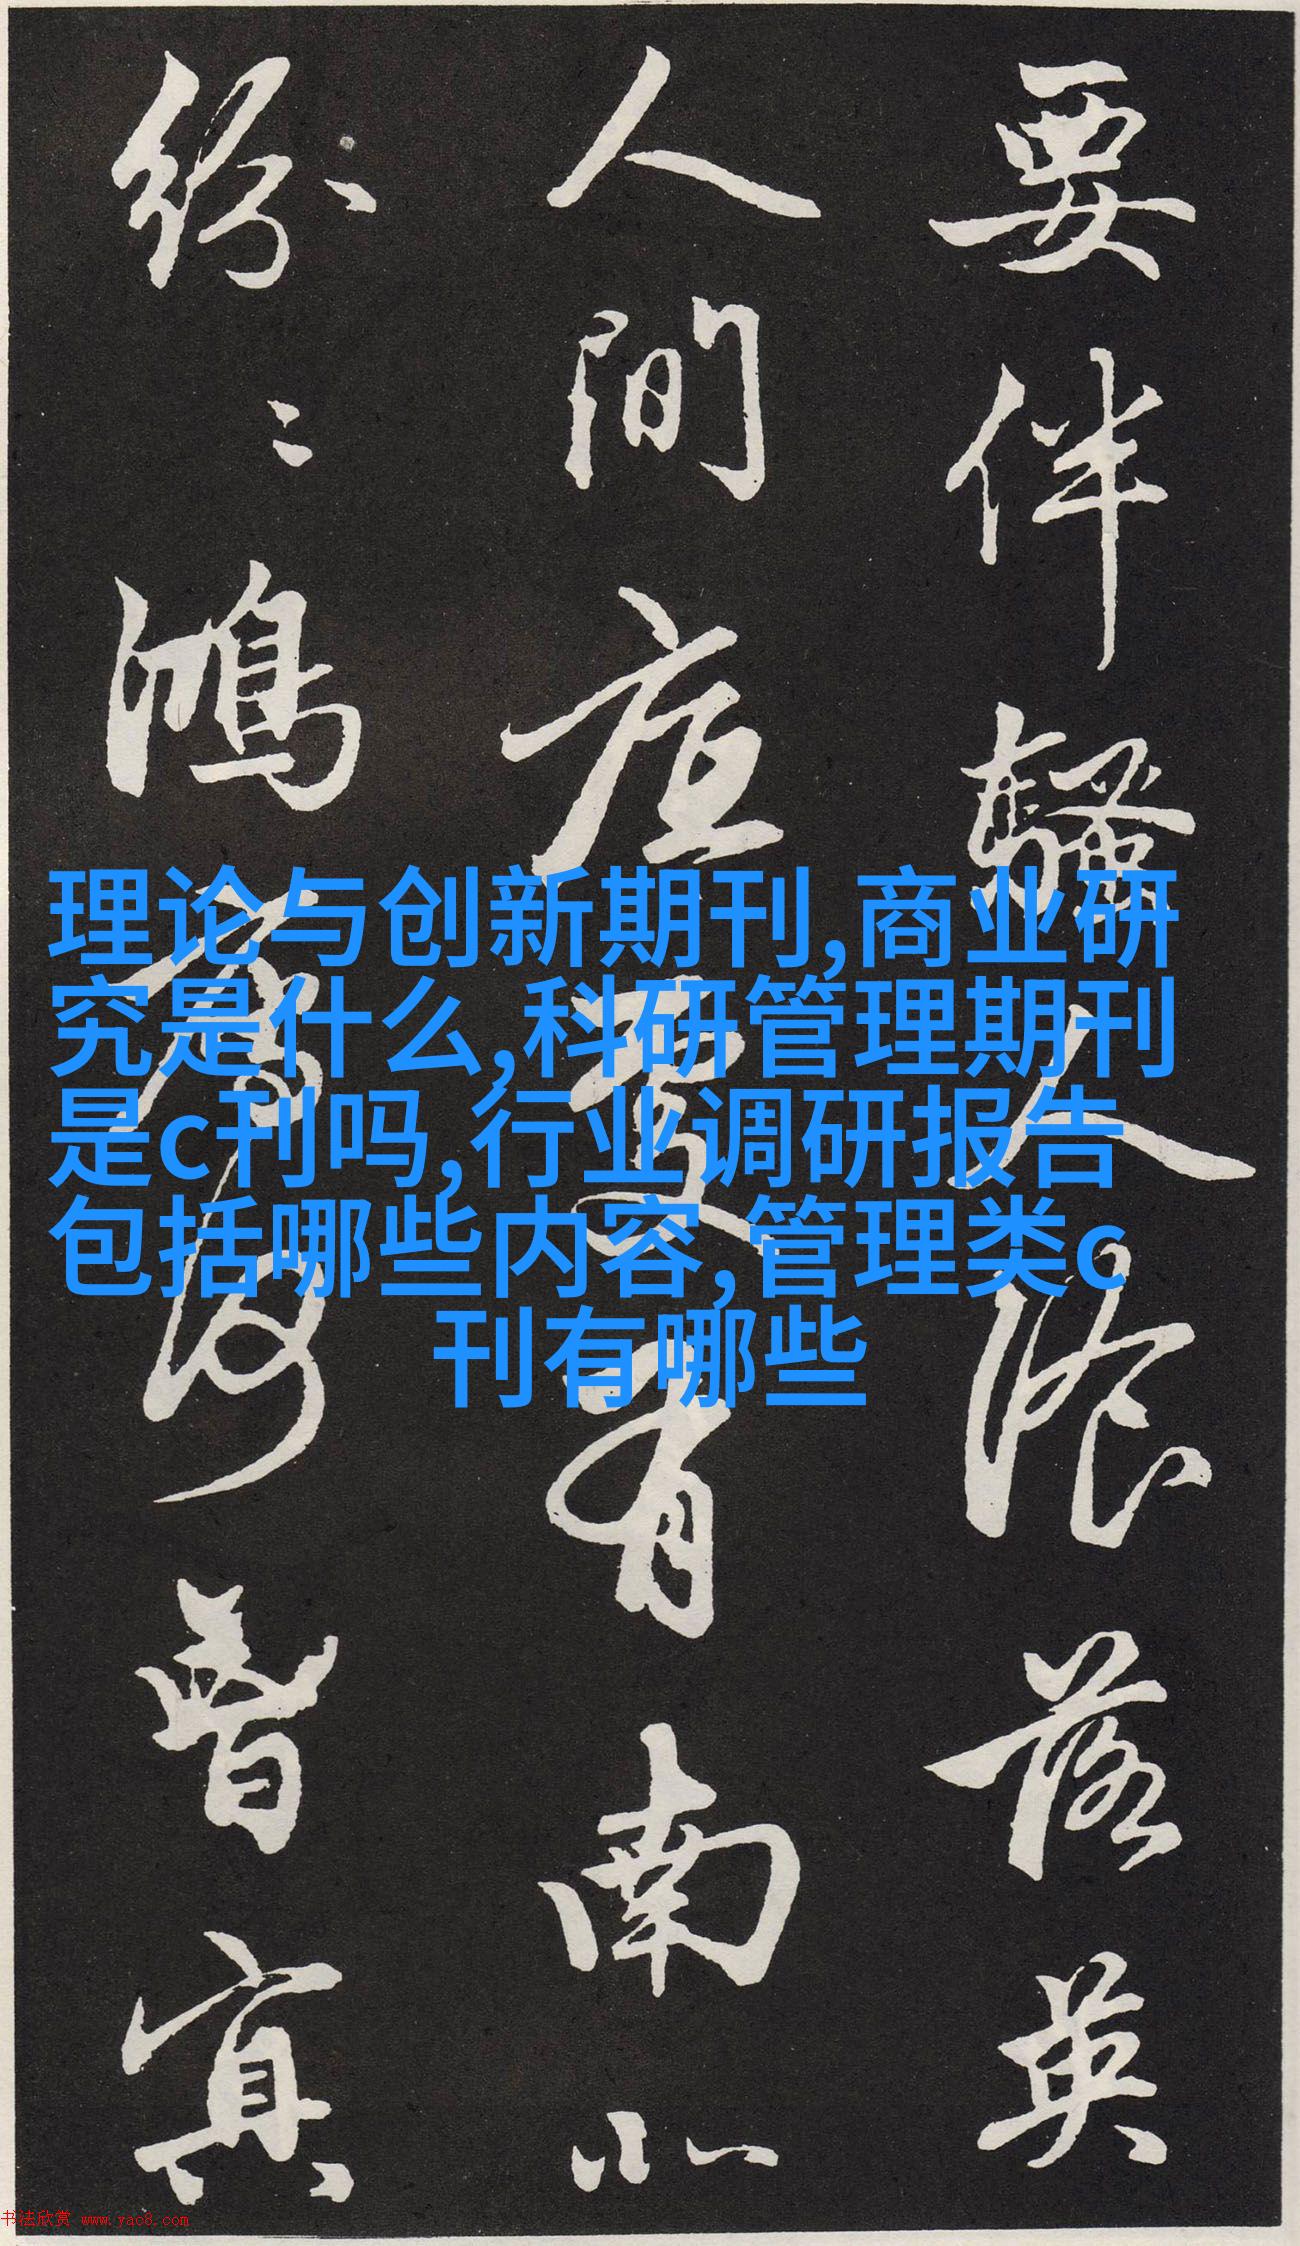 要伴騷人飡落英
人間底有南北
紛〻鴻雁何曾冥
理论与创新期刊,商业研
究是什么,科研管理期刊
是c刊吗,行业调研报告
包括哪些内容,管理类c
刊有哪些
书法欣赏 www.yac8.com